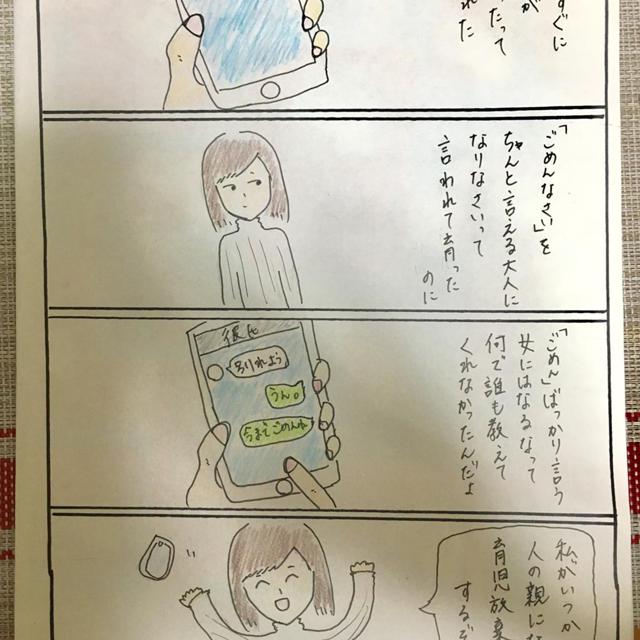 すぐに
が
たって
れた
「ごめんなさい」を
ちゃんと言える大人に
なりなさいって
言われて育った
のに
「ごめん」ばっかり言う
女にはなるなって
何で誰も教えて
くれなかったんだよ
彼氏
別れよう
うん。
今までごめんね
私がいつか
人の親にな
育児放棄
するぞ